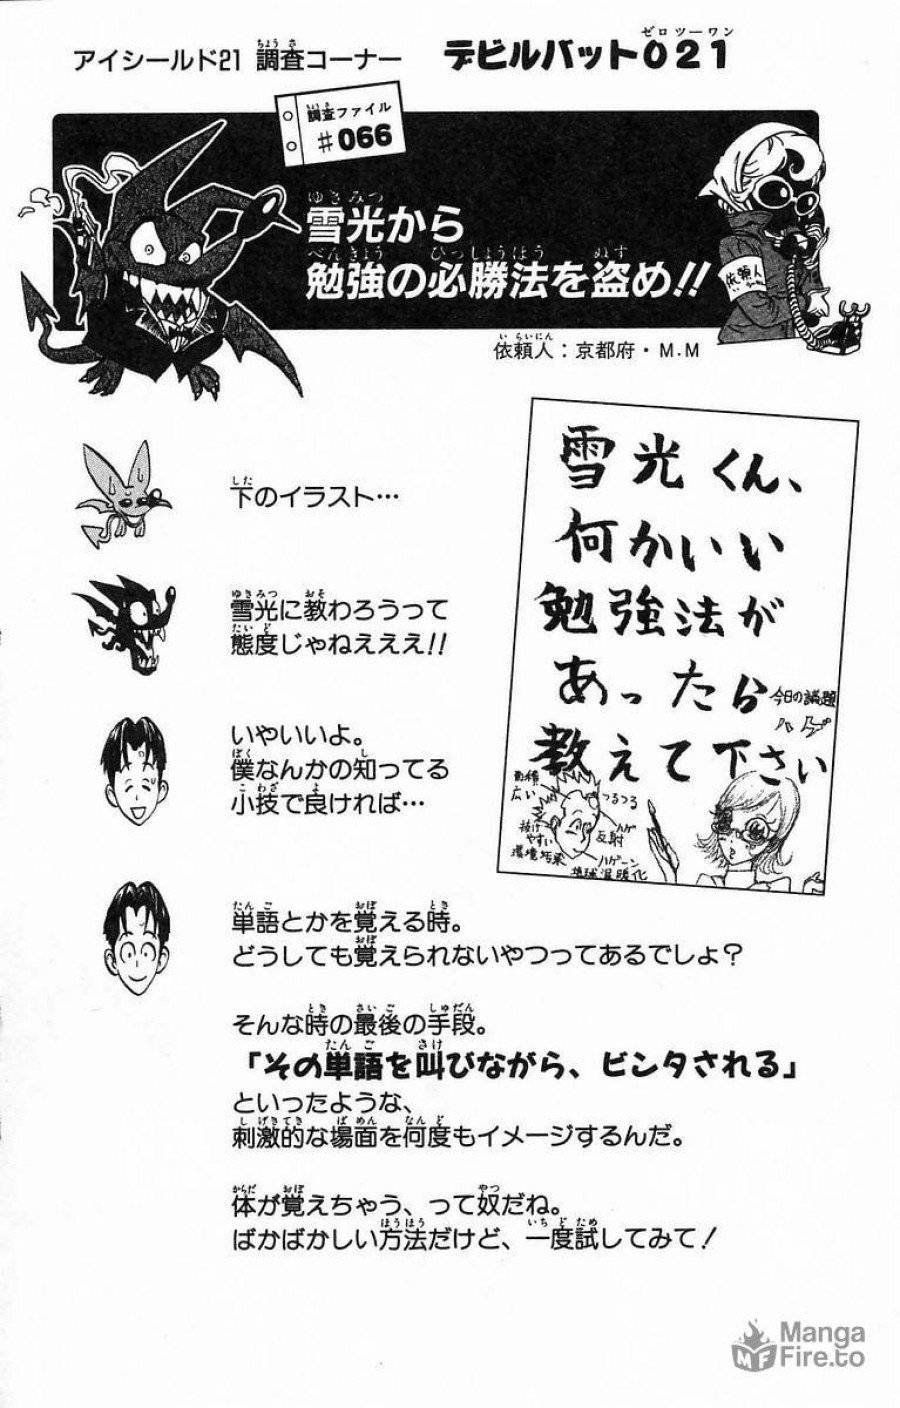 アイシールド21 調査コーナー デビルバット021
調査ファイル
#066
雪光から
勉強の必勝法を盗め!!
依頼人
依頼人：京都府・M.M
雪光くん、
何かいい
勉強法が
あったら
教えて下さい
今日の議題
ハゲ
面積
広い
つるつる
抜け
やすい
ハゲ
反射
環境破壊
ハゲーン
地球温暖化
下のイラスト…
雪光に教わろうって
態度じゃねえええ!!
いやいいよ。
僕なんかの知ってる
小技で良ければ…
単語とかを覚える時。
どうしても覚えられないやつってあるでしょ？
そんな時の最後の手段。
「その単語を叫びながら、ビンタされる」
といったような、
刺激的な場面を何度もイメージするんだ。
体が覚えちゃう、って奴だね。
ばかばかしい方法だけど、一度試してみて！
MF
Manga
Fire.to